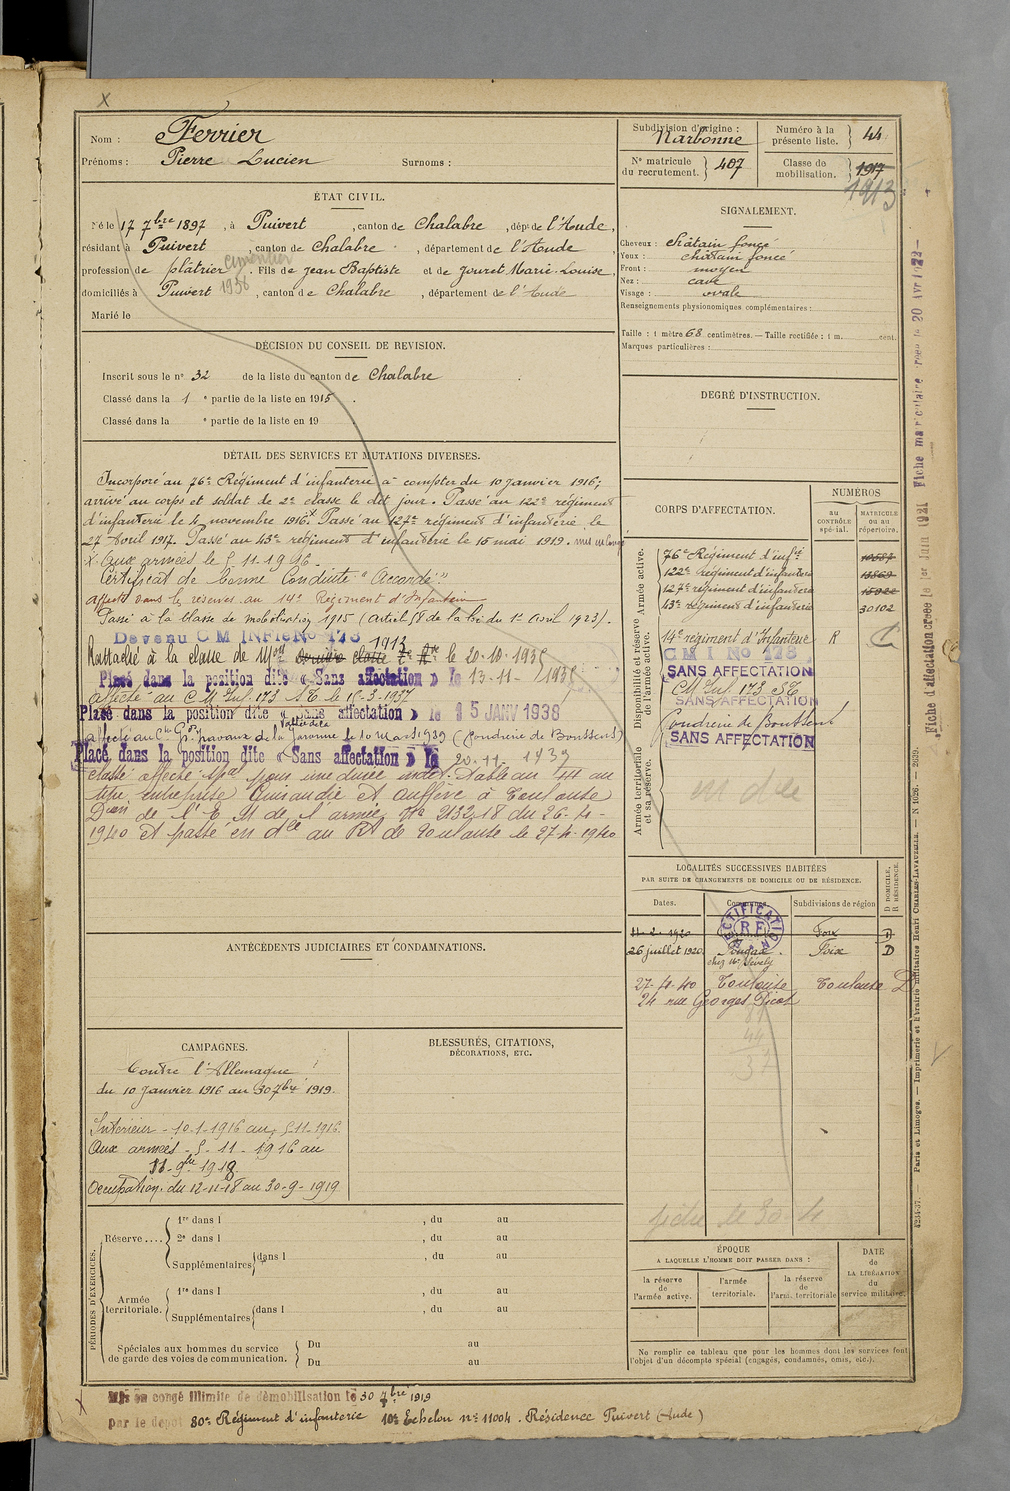 X
Nom : Ferrier
Prénoms : Pierre Lucien Surnoms :
ÉTAT CIVIL.
Né le 17 7bre 1897, à Puivert, canton de Chalabre, dépt de l'Aude,
résidant à Puivert, canton de Chalabre, département de l'Aude
cimentier
profession de plâtrier. Fils de Jean Baptiste et de Jouret Marie-Louise,
1936
domiciliés à Puivert, canton de Chalabre, département de l'Aude
Marié le
DÉCISION DU CONSEIL DE REVISION.
Inscrit sous le n° 32 de la liste du canton de Chalabre
Classé dans la 1e partie de la liste en 1915.
Classé dans la e partie de la liste en 19
DÉTAIL DES SERVICES ET MUTATIONS DIVERSES.
Incorporé au 76e Régiment d'infanterie à compter du 10 janvier 1916;
arrivé au corps et soldat de 2e classe le dit jour. Passé au 122e régiment
d'infanterie le 4 novembre 1916.x Passé au 127e régiment d'infanterie le
27 Avril 1917. Passé au 43e régiment d'infanterie le 15 mai 1919.
X. Aux armées le 5.11.1916.
Certificat de bonne Conduite "Accordé"
Affecté dans les réserves au 14e Régiment d'Infanterie
Passé à la classe de mobilisation 1915 (article 58 de la loi du 1er Avril 1923).
Devenu C M INFie No 173
1913
Rattaché à la classe de Mon le 20.10.1935
Placé dans la position dite « Sans affectation » le 13-11-1935
affecté au C M Inf. 173 S.E. le 15-3-1937
Placé dans la position dite « Sans affectation » le 15 JANV 1938
travaux de la Garonne le 10 mars 1939 (fonderie de Boussens)
Placé dans la position dite « Sans affectation » le 20.11.1939
classé affecté spal pour une durée indét. Tableau 44 au
titre entreprise Guiraudie et Auffève à Toulouse
Don de l'E M de l'armée No 2132/18 du 26-4-
1940 et passé en dle au Rt de Toulouse le 27-4-1940
ANTÉCÉDENTS JUDICIAIRES ET CONDAMNATIONS.
CAMPAGNES.
Contre l'Allemagne
du 10 Janvier 1916 au 30 7bre 1919.
Intérieur - 10-1-1916 au 5-11-1916.
Aux armées - 5 - 11 - 1916 au
11-9bre 1918.
Occupation. du 12-11-18 au 30-9-1919
BLESSURES, CITATIONS,
DÉCORATIONS, ETC.
PÉRIODES D'EXERCICES.
Réserve.... 1re dans l , du au
2e dans l , du au
Supplémentaires dans l , du au
Armée territoriale. 1re dans l , du au
Supplémentaires dans l , du au
Spéciales aux hommes du service
de garde des voies de communication.
Du au
Du au
Mis en congé illimité de démobilisation le 30 7bre 1919
par le dépôt 80e Régiment d'infanterie 10e Echelon n° 11004. Résidence Puivert (Aude)
Subdivision d'origine :
Narbonne
Numéro à la
présente liste. 44
N° matricule
du recrutement. 407
Classe de
mobilisation. 1917
1913
SIGNALEMENT.
Cheveux : châtain foncé
Yeux : châtain foncé
Front : moyen
Nez : cave
Visage : ovale
Renseignements physionomiques complémentaires :
Taille : 1 mètre 68 centimètres. — Taille rectifiée : 1 m. cent.
Marques particulières :
DEGRÉ D'INSTRUCTION.
CORPS D'AFFECTATION.
NUMÉROS
au
CONTRÔLE
spécial.
MATRICULE
ou au
répertoire.
Armée active.
76e Régiment d'infie 10587
122e régiment d'infanterie 13869
127e régiment d'infanterie
43e régiment d'infanterie 30102
Disponibilité et réserve
de l'armée active.
14e régiment d'Infanterie R
C M I No 178
SANS AFFECTATION
C M Inf 173 SE
SANS AFFECTATION
fonderie de Boussens
SANS AFFECTATION
Armée territoriale
et sa réserve.
en dle
LOCALITÉS SUCCESSIVES HABITÉES
PAR SUITE DE CHANGEMENTS DE DOMICILE OU DE RÉSIDENCE.
Dates. Communes. Subdivisions de région
D DOMICILE.
R RÉSIDENCE.
RECTIFICATION
R F
1920 Foix D
26 juillet 1920 Foix D
27-4-40 Toulouse Toulouse D
24 rue Georges Picot
81
44
37
fiche le 30-4
ÉPOQUE
A LAQUELLE L'HOMME DOIT PASSER DANS :
la réserve
de
l'armée active.
l'armée
territoriale.
la réserve
de
l'armée territoriale
DATE
de
LA LIBÉRATION
du
service militaire.
Ne remplir ce tableau que pour les hommes dont les services font
l'objet d'un décompte spécial (engagés, condamnés, omis, etc.).
Fiche matriculaire créée le 20 Avr 1922
Fiche d'affectation créée le 1er Juin 1921
4234-37. — Paris et Limoges. — Imprimerie et librairie militaires Henri CHARLES-LAVAUZELLE. — N 1626. — 2639.